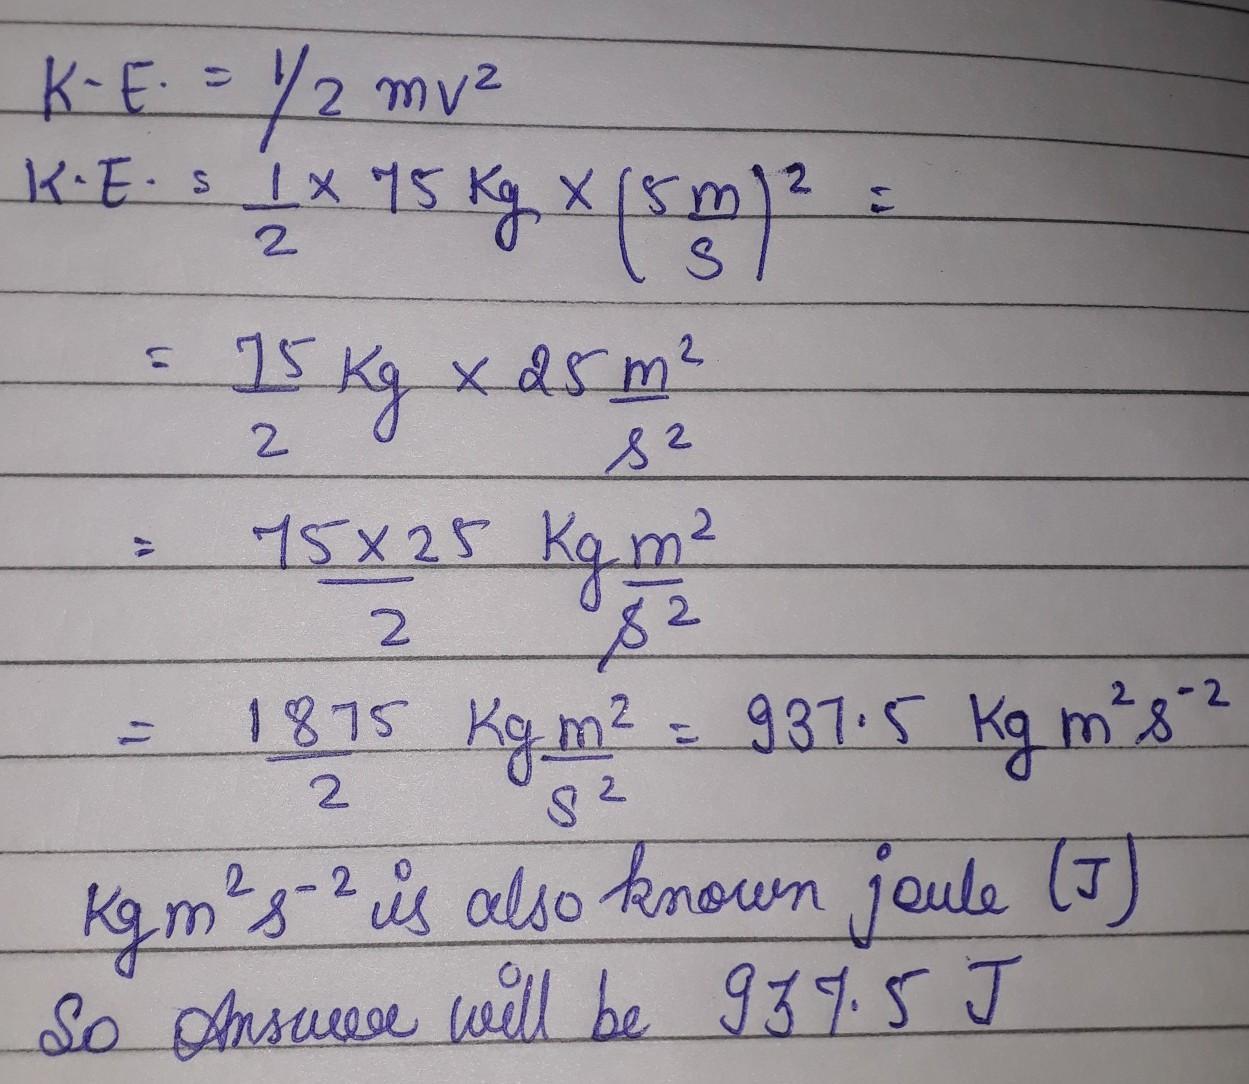 K-E. = 1/2 mv²
K.E. = 1/2 x 75 Kg x (5 m/s)² =
= 75/2 Kg x 25 m²/s²
= 75x25/2 Kg m²/s²
= 1875/2 Kg m²/s² = 937.5 Kg m²s⁻²
Kgm²s⁻² is also known joule (J)
So Answer will be 937.5 J